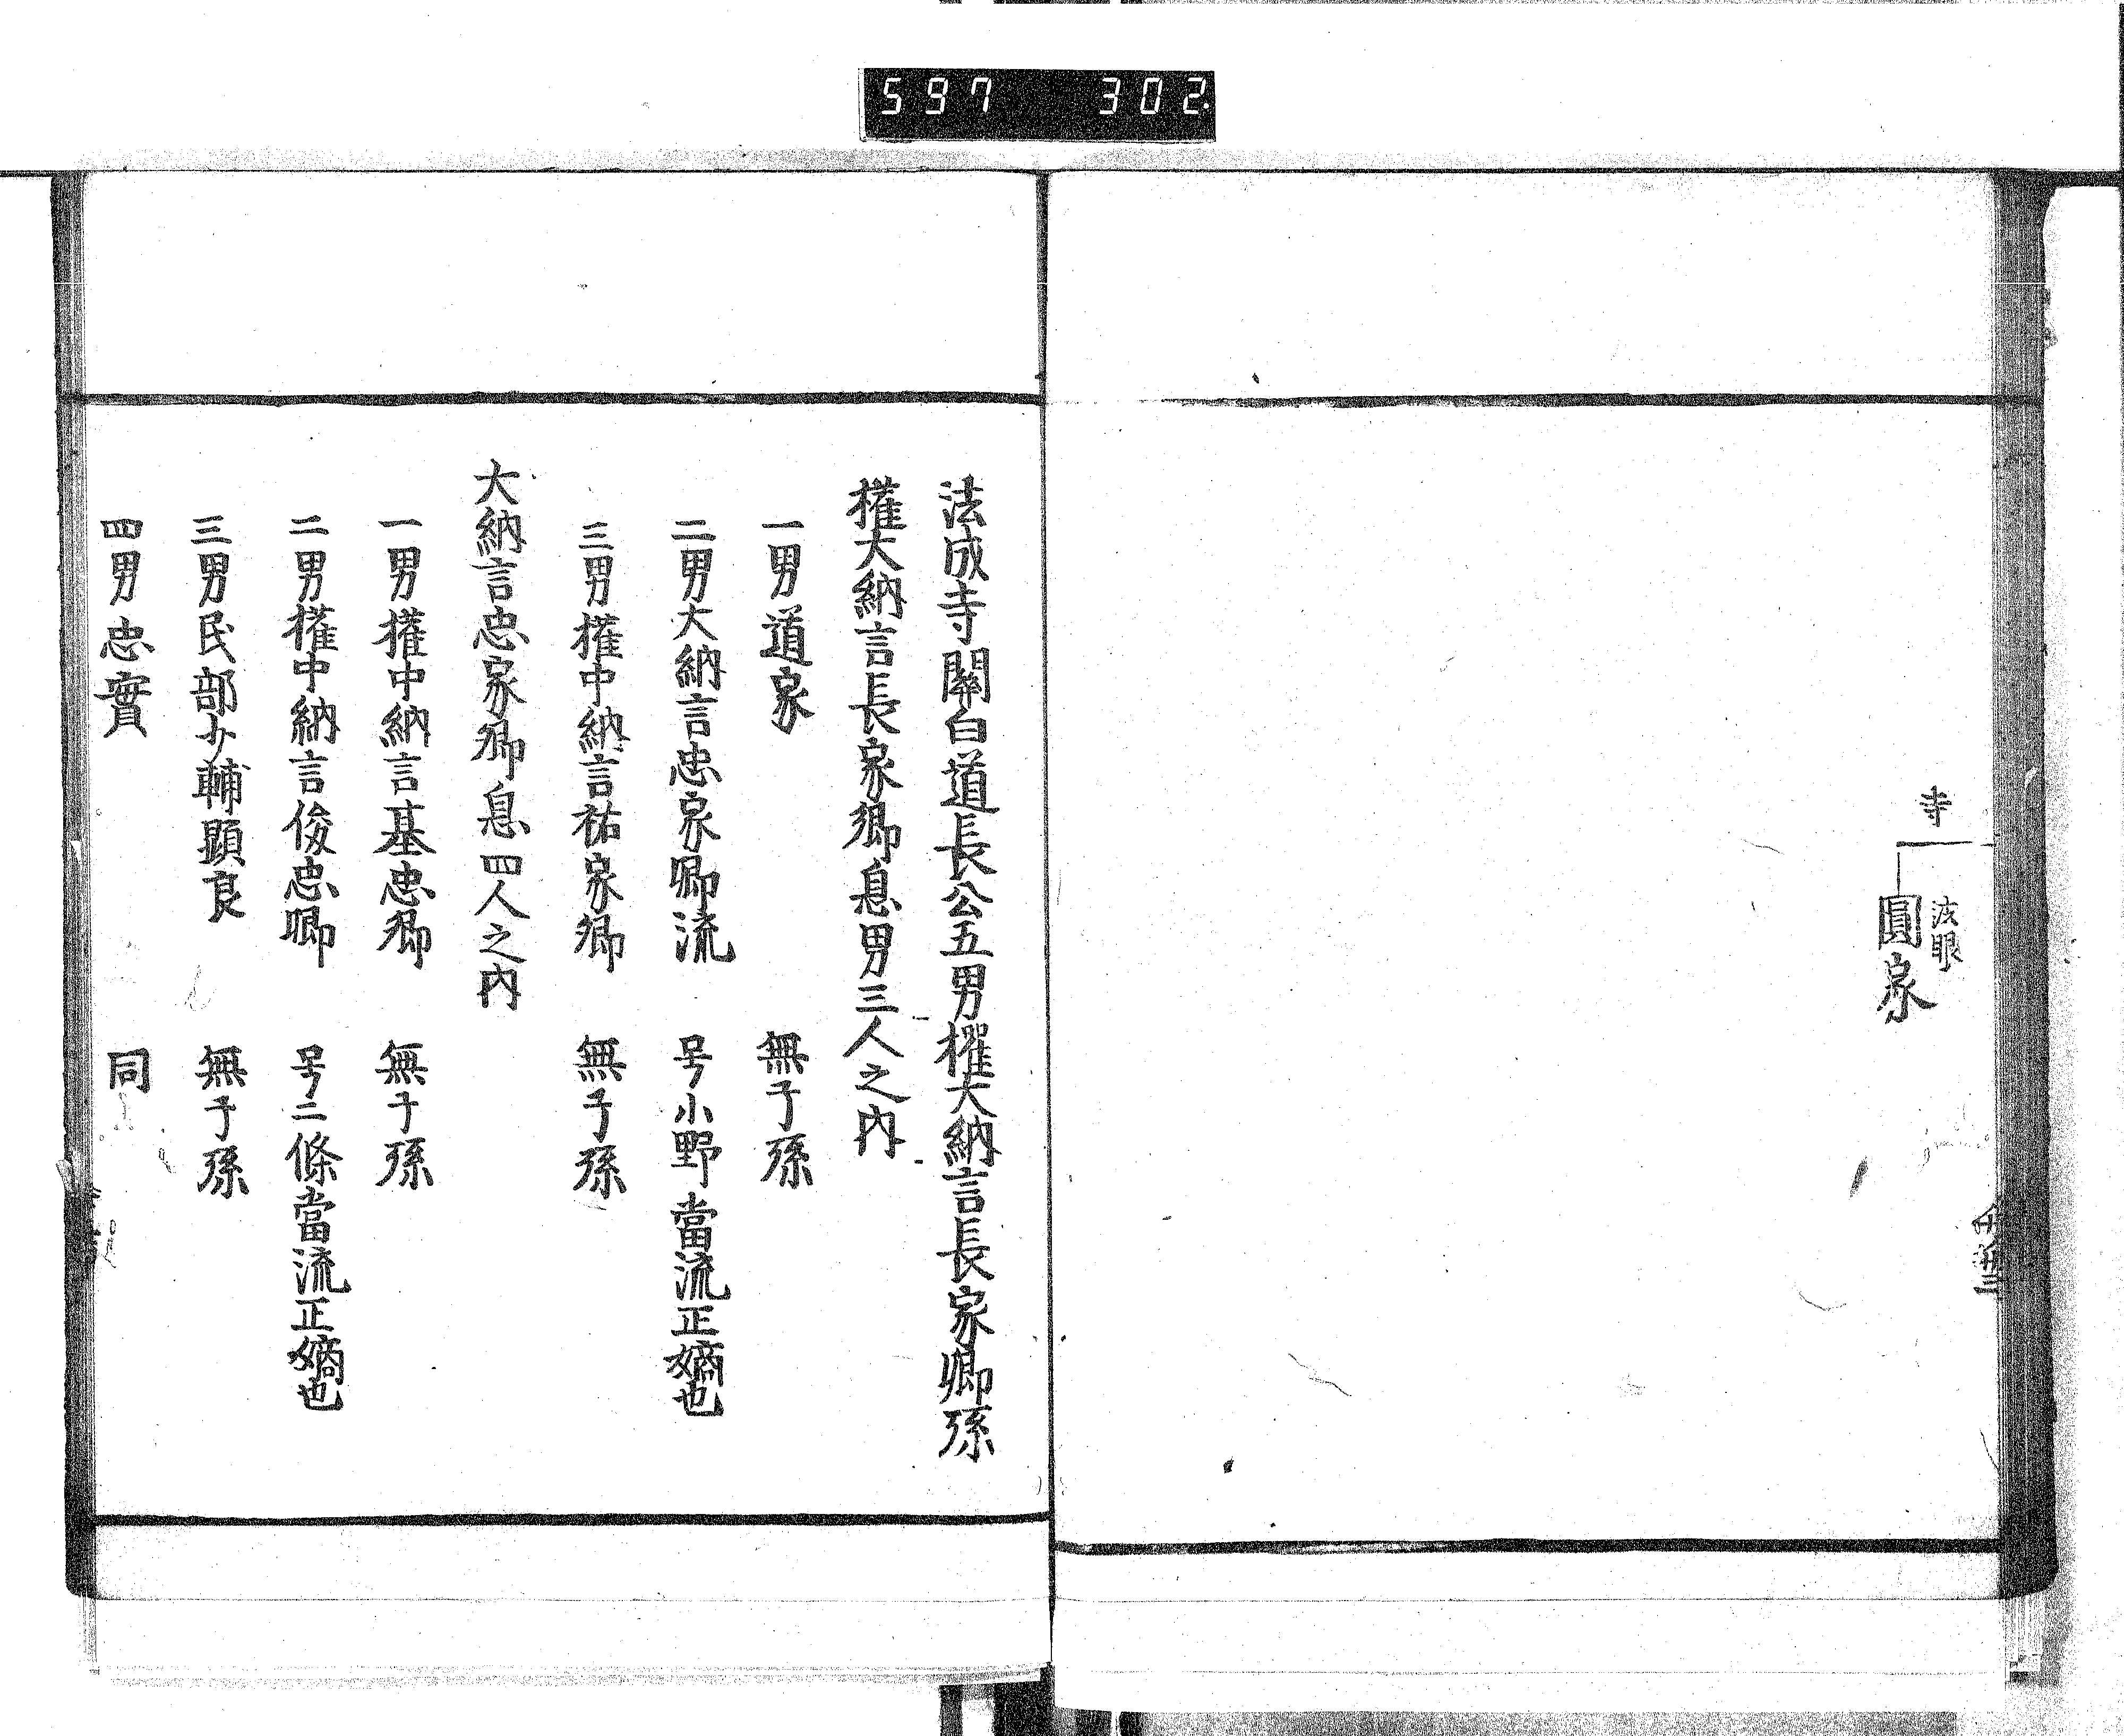 597 302.
寺
法眼
圓家
法成寺關白道長公五男權大納言長家卿孫
權大納言長家卿息男三人之内
一男道家 無子孫
二男大納言忠家卿流 号小野當流正嫡也
三男權中納言祐家卿 無子孫
大納言忠家卿息四人之内
一男權中納言基忠卿 無子孫
二男權中納言俊忠卿 号二條當流正嫡也
三男民部少輔顕良 無子孫
四男忠實 同